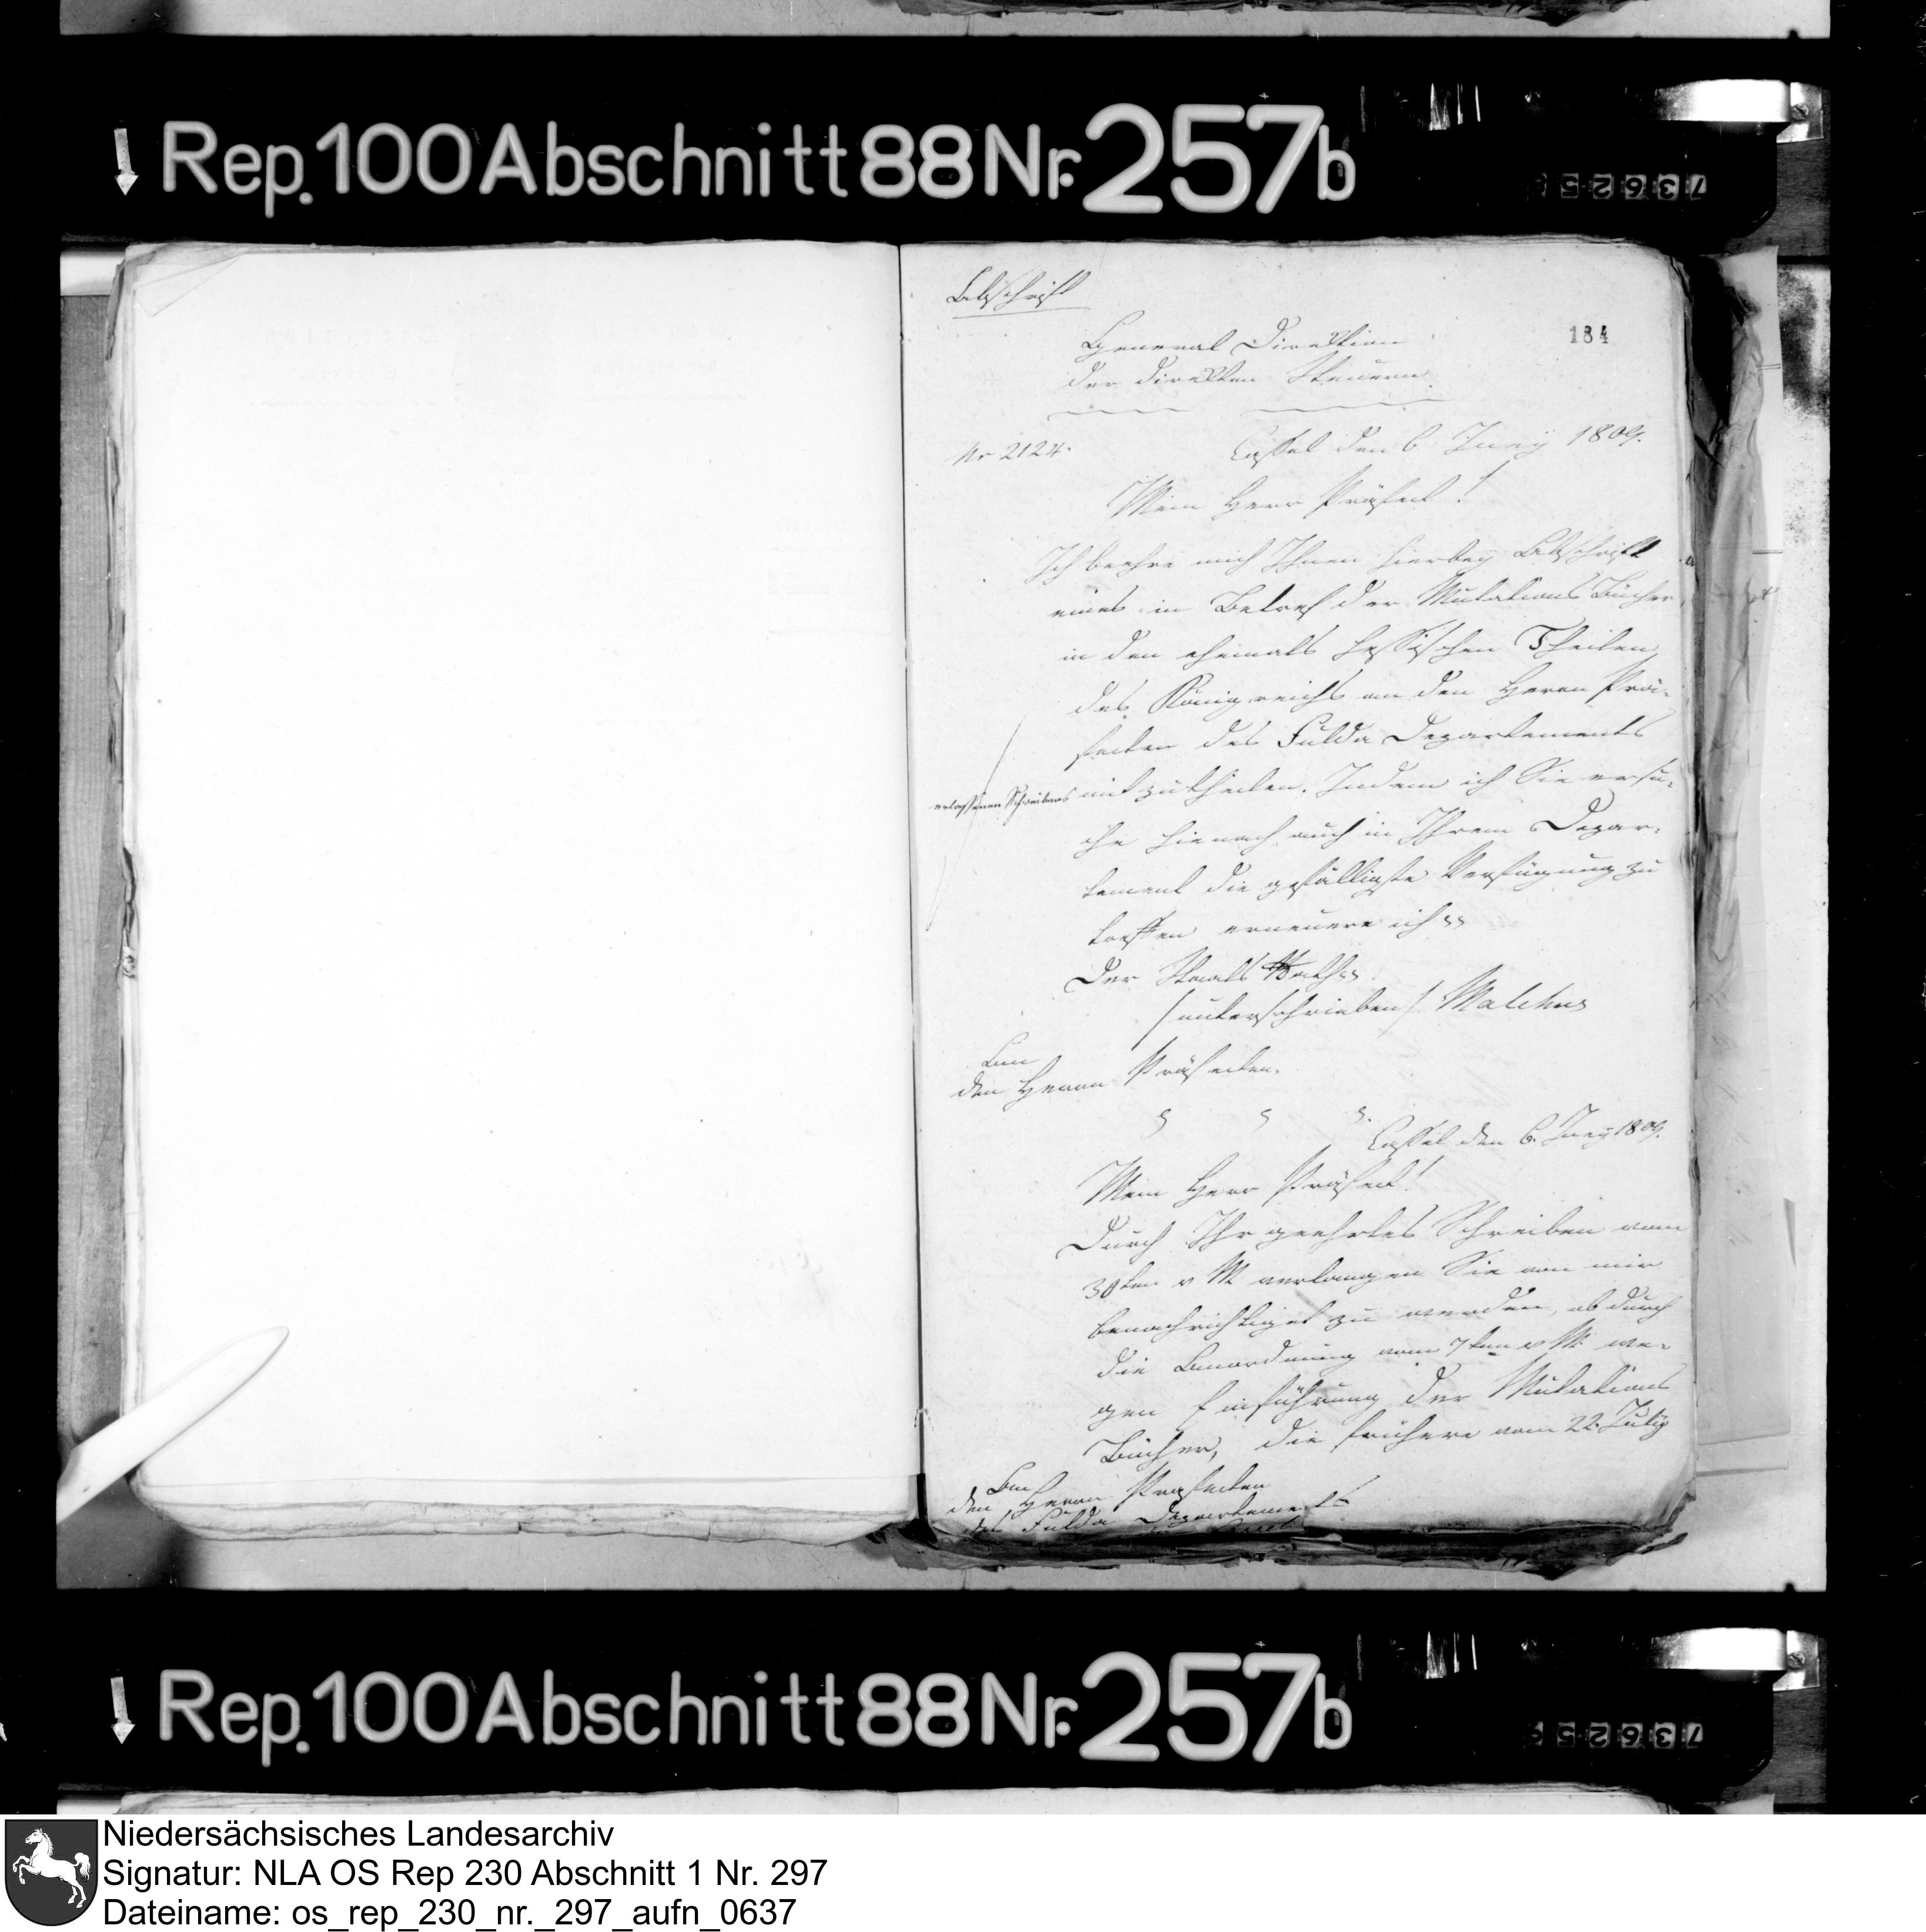 Rep. 100 Abschnitt 88 Nr. 257b
Abschrift
184
General Direktion
der direkten Steuern
Nr 2124.
Cassel den 6 Juny 1809.
Mein Herr Präfect!
Ich beehre mich Ihnen hierbey Abschrift
eines in Betref der Mutations Bücher
in den ehemals hessischen Theilen
des Königreichs an den Herrn Prä-
fecten des Fulda Departements
erlassenen Schreibens mit zutheilen. Indem ich Sie ersu-
che hienach auch in Ihrem Depar-
tement die gefälligste Verfügung zu
treffen erneuere ich
Der Staats Rath
/unterschrieben/ Malchus
An
den Herrn Präfecten
Cassel den 6. Juny 1809.
Mein Herr Präfect!
Durch Ihr geehrtes Schreiben vom
30ten v M verlangen Sie von mir
benachrichtiget zu werden, ob durch
die Anordnung vom 7ten v M. we-
gen Einführung der Mutations
Bücher, die frühere vom 22. July
An
den Herrn Präfecten
des Fulda Departements
Rep. 100 Abschnitt 88 Nr. 257b
Niedersächsisches Landesarchiv
Signatur: NLA OS Rep 230 Abschnitt 1 Nr. 297
Dateiname: os_rep_230_nr._297_aufn_0637